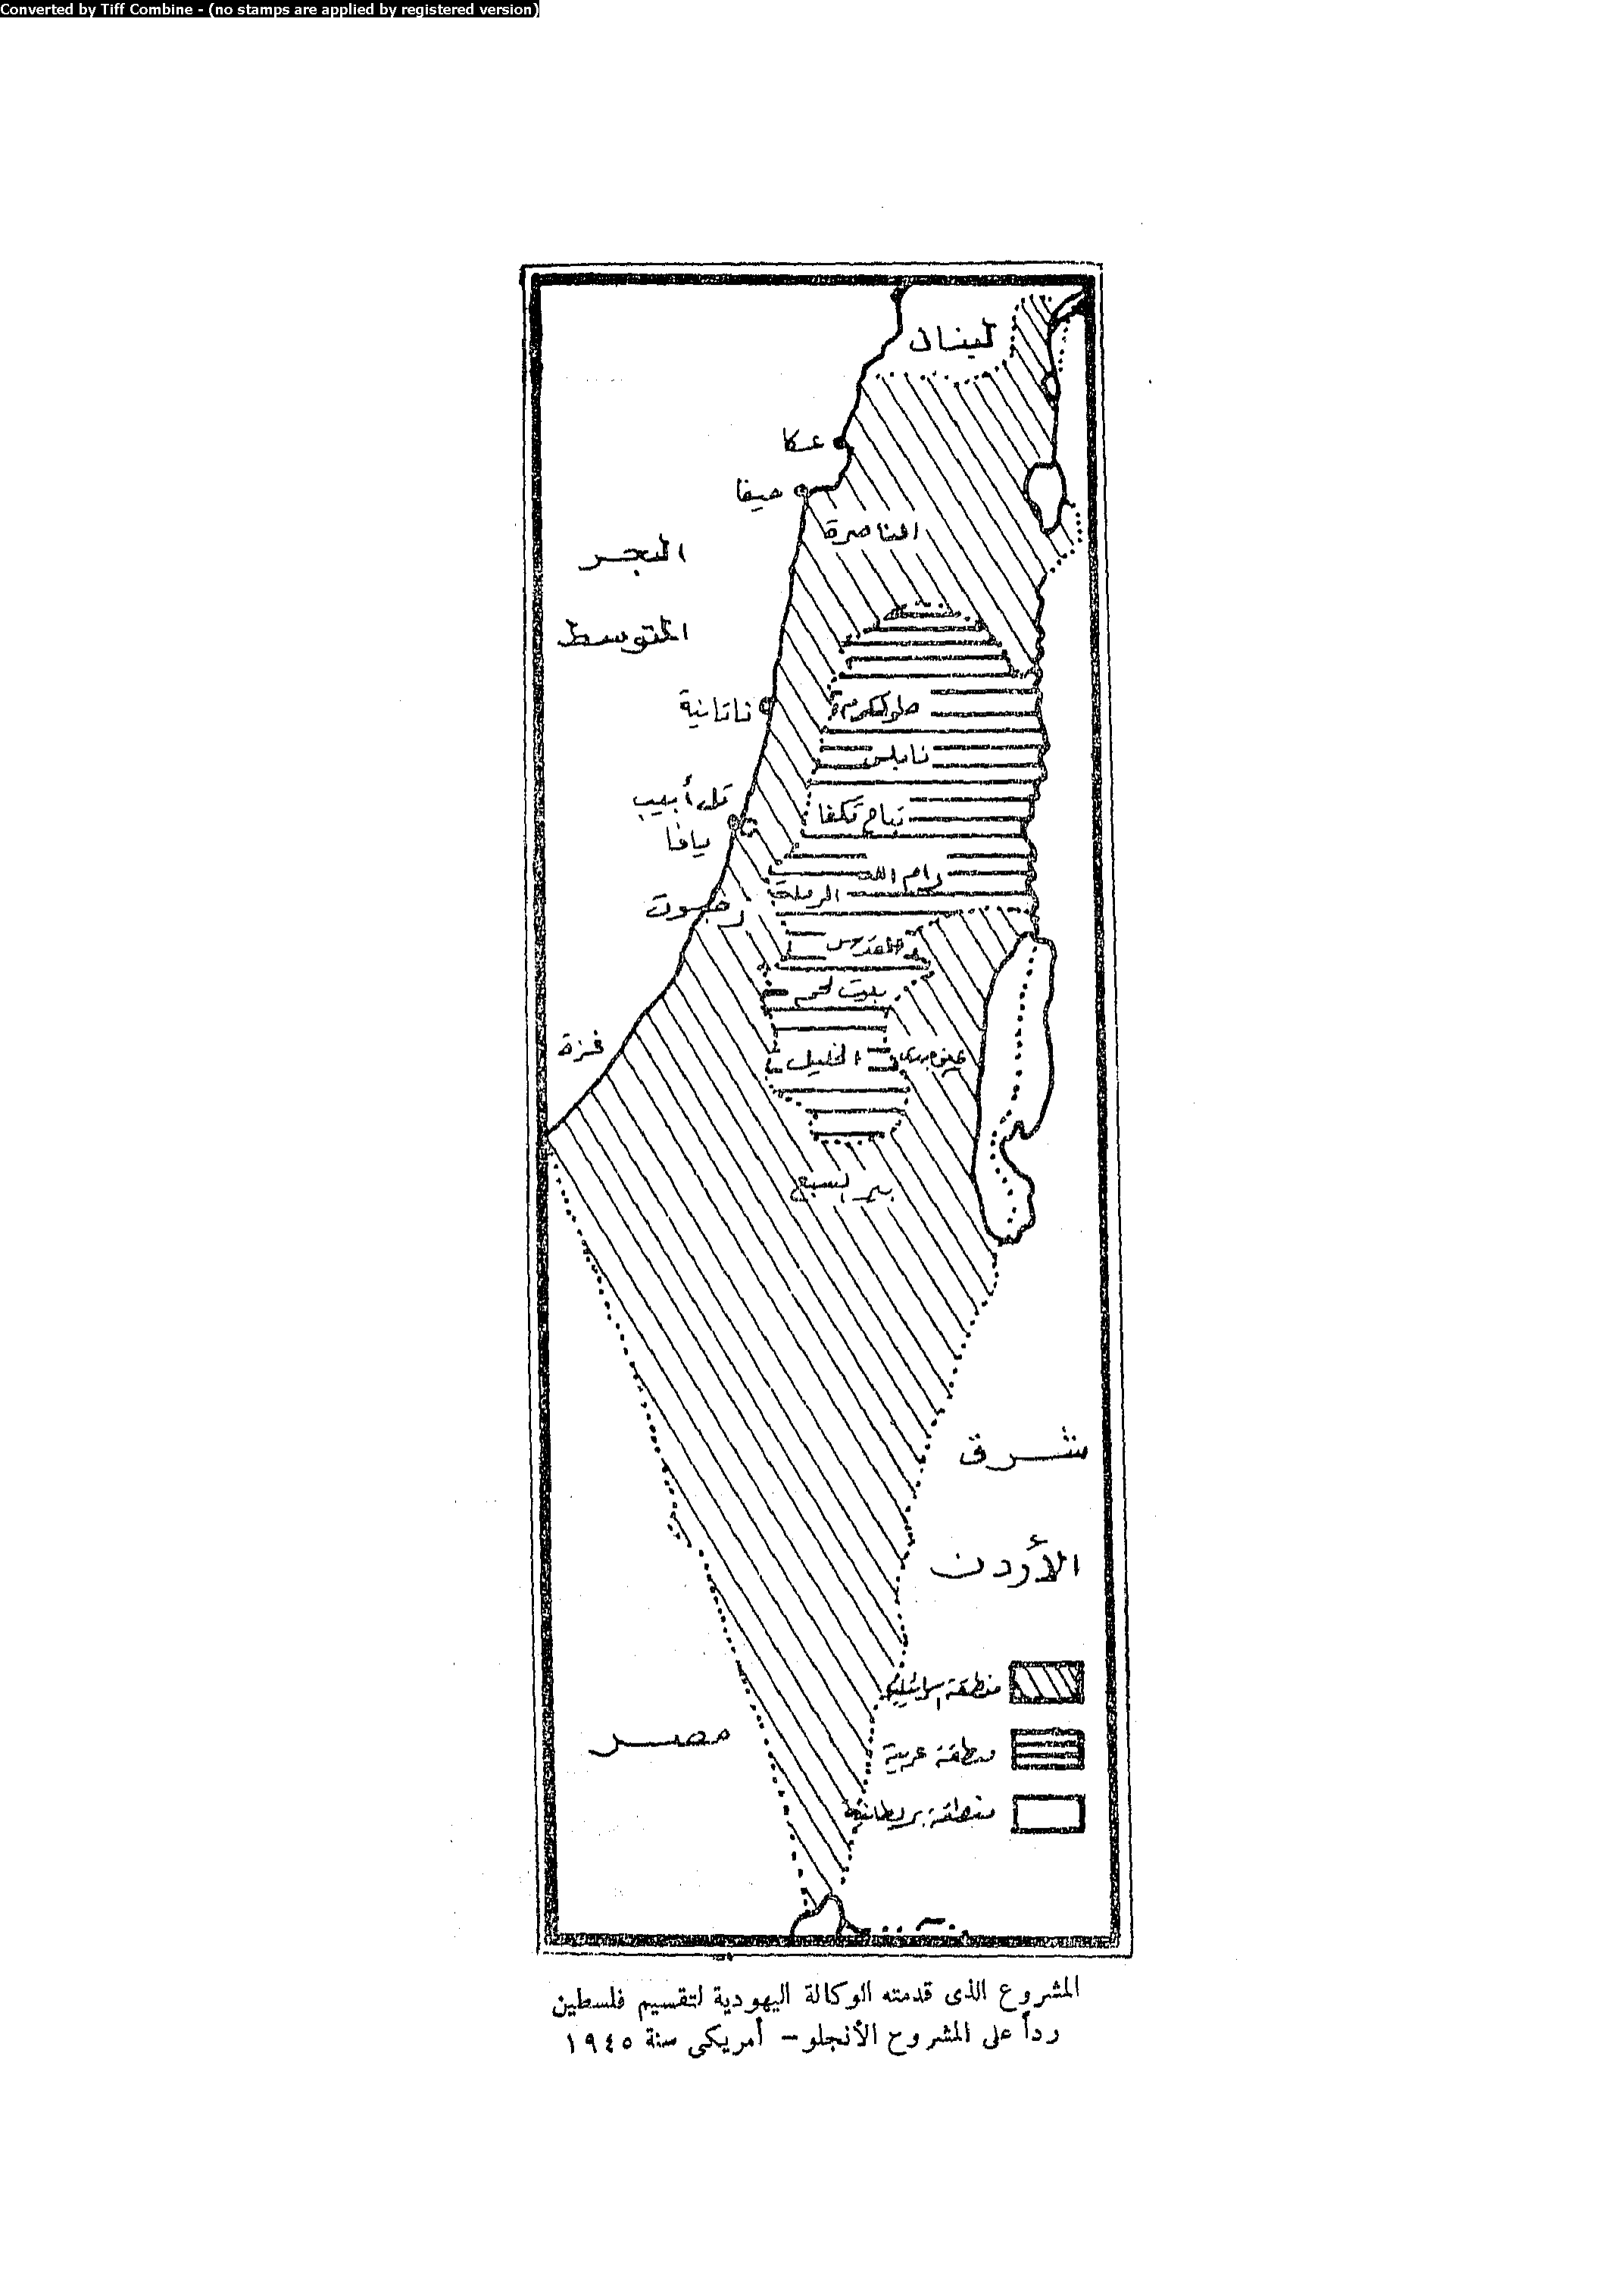 Converted by Tiff Combine - (no stamps are applied by registered version)
لبنان
عكا
حيفا
الناصرة
البحر
المتوسط
ناتانية
طولكرم
نابلس
تل أبيب
يافا
بتاح تكفا
رام الله
الرملة
رحبوت
القدس
بيت لحم
غزة
الخليل
عين جدى
بير السبع
شرق
الأردن
منطقة إسرائيلية
مصر
منطقة عربية
منطقة بريطانية
المشروع الذى قدمته الوكالة اليهودية لتقسيم فلسطين
رداً على المشروح الأنجلو – أمريكى سنة ١٩٤٥